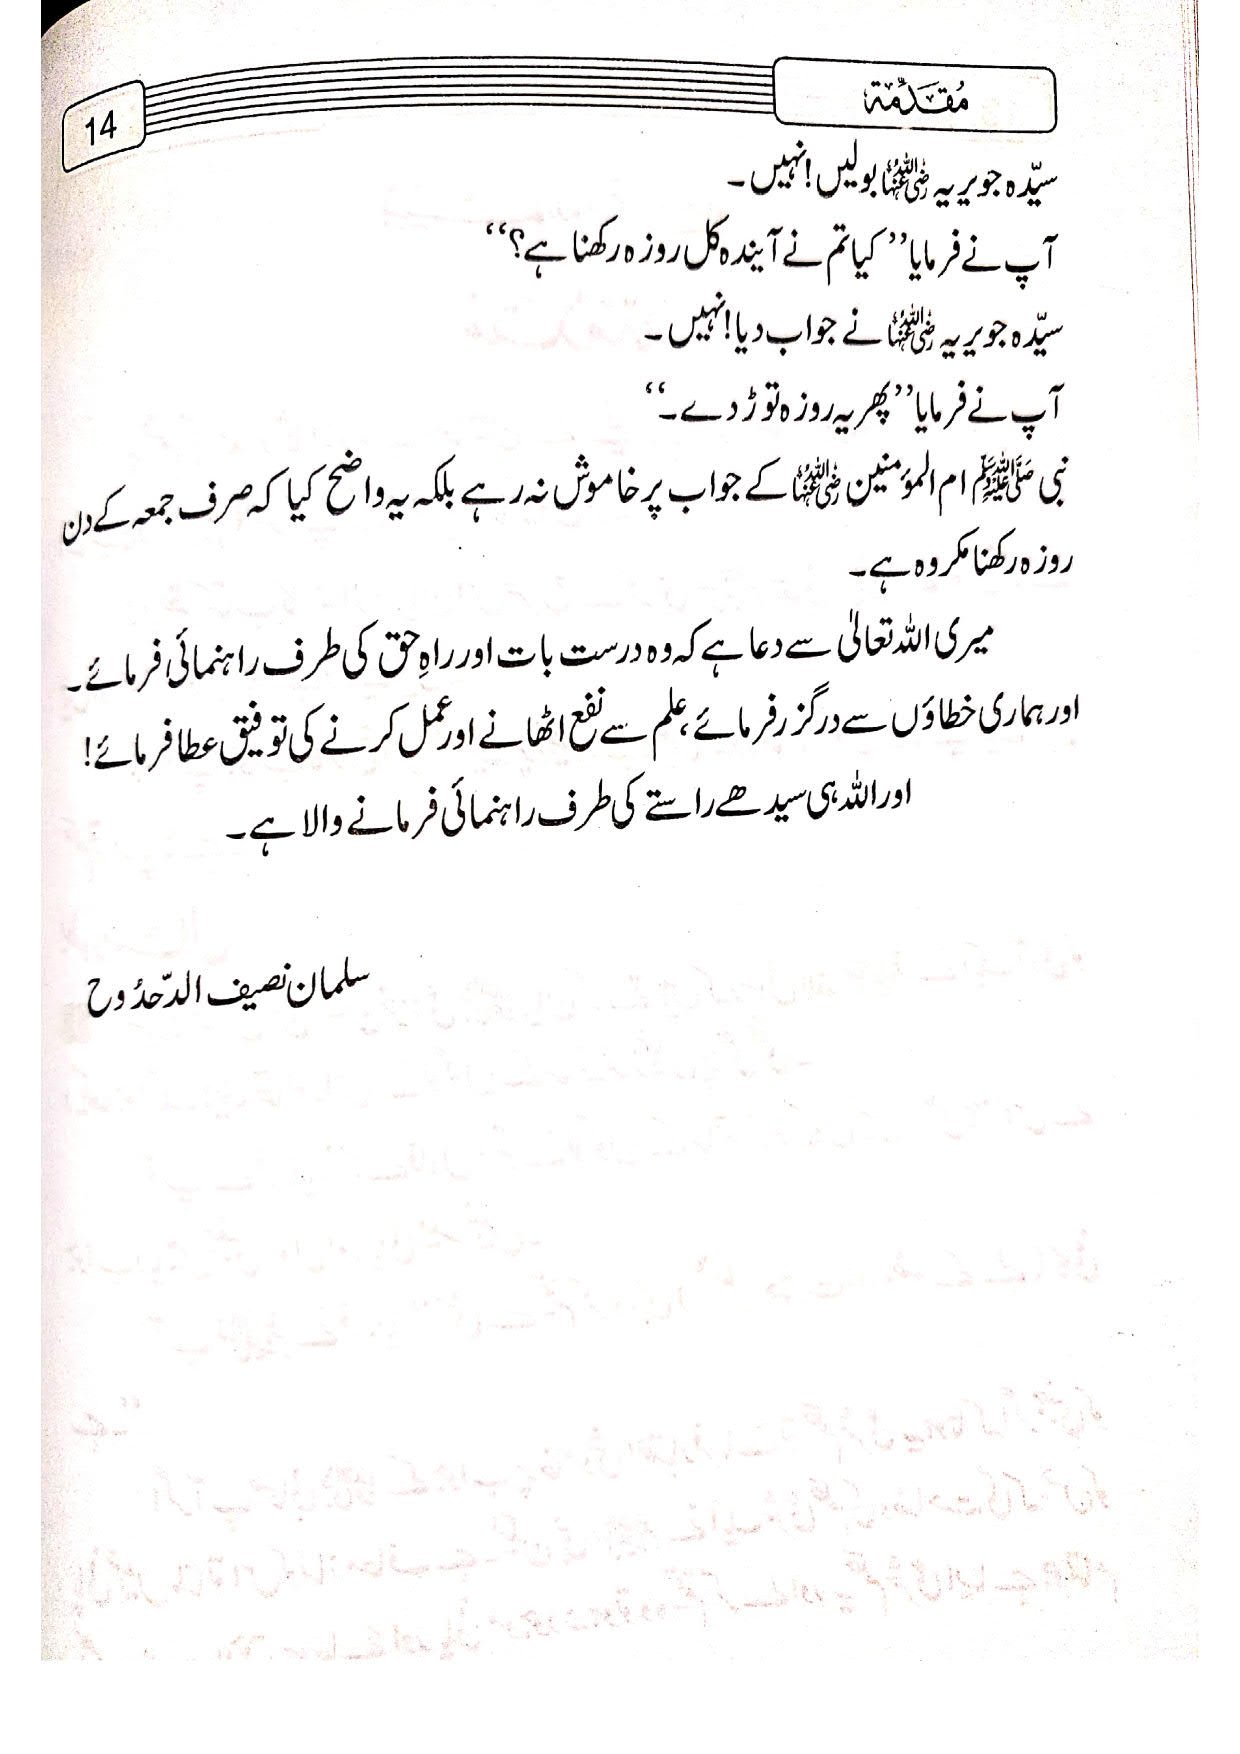 مُقَدِّمَة
14
سیّدہ جویریہ رضی اللہ عنہا بولیں! نہیں۔
آپ نے فرمایا ’’کیا تم نے آیندہ کل روزہ رکھنا ہے؟‘‘
سیّدہ جویریہ رضی اللہ عنہا نے جواب دیا! نہیں۔
آپ نے فرمایا ’’پھر یہ روزہ توڑ دے۔‘‘
نبی ﷺ ام المؤمنین رضی اللہ عنہا کے جواب پر خاموش نہ رہے بلکہ یہ واضح کیا کہ صرف جمعہ کے دن
روزہ رکھنا مکروہ ہے۔
میری اللہ تعالیٰ سے دعا ہے کہ وہ درست بات اور راہِ حق کی طرف راہنمائی فرمائے۔
اور ہماری خطاؤں سے درگزر فرمائے، علم سے نفع اٹھانے اور عمل کرنے کی توفیق عطا فرمائے!
اور اللہ ہی سیدھے راستے کی طرف راہنمائی فرمانے والا ہے۔
سلمان نصیف الدّحدُوح